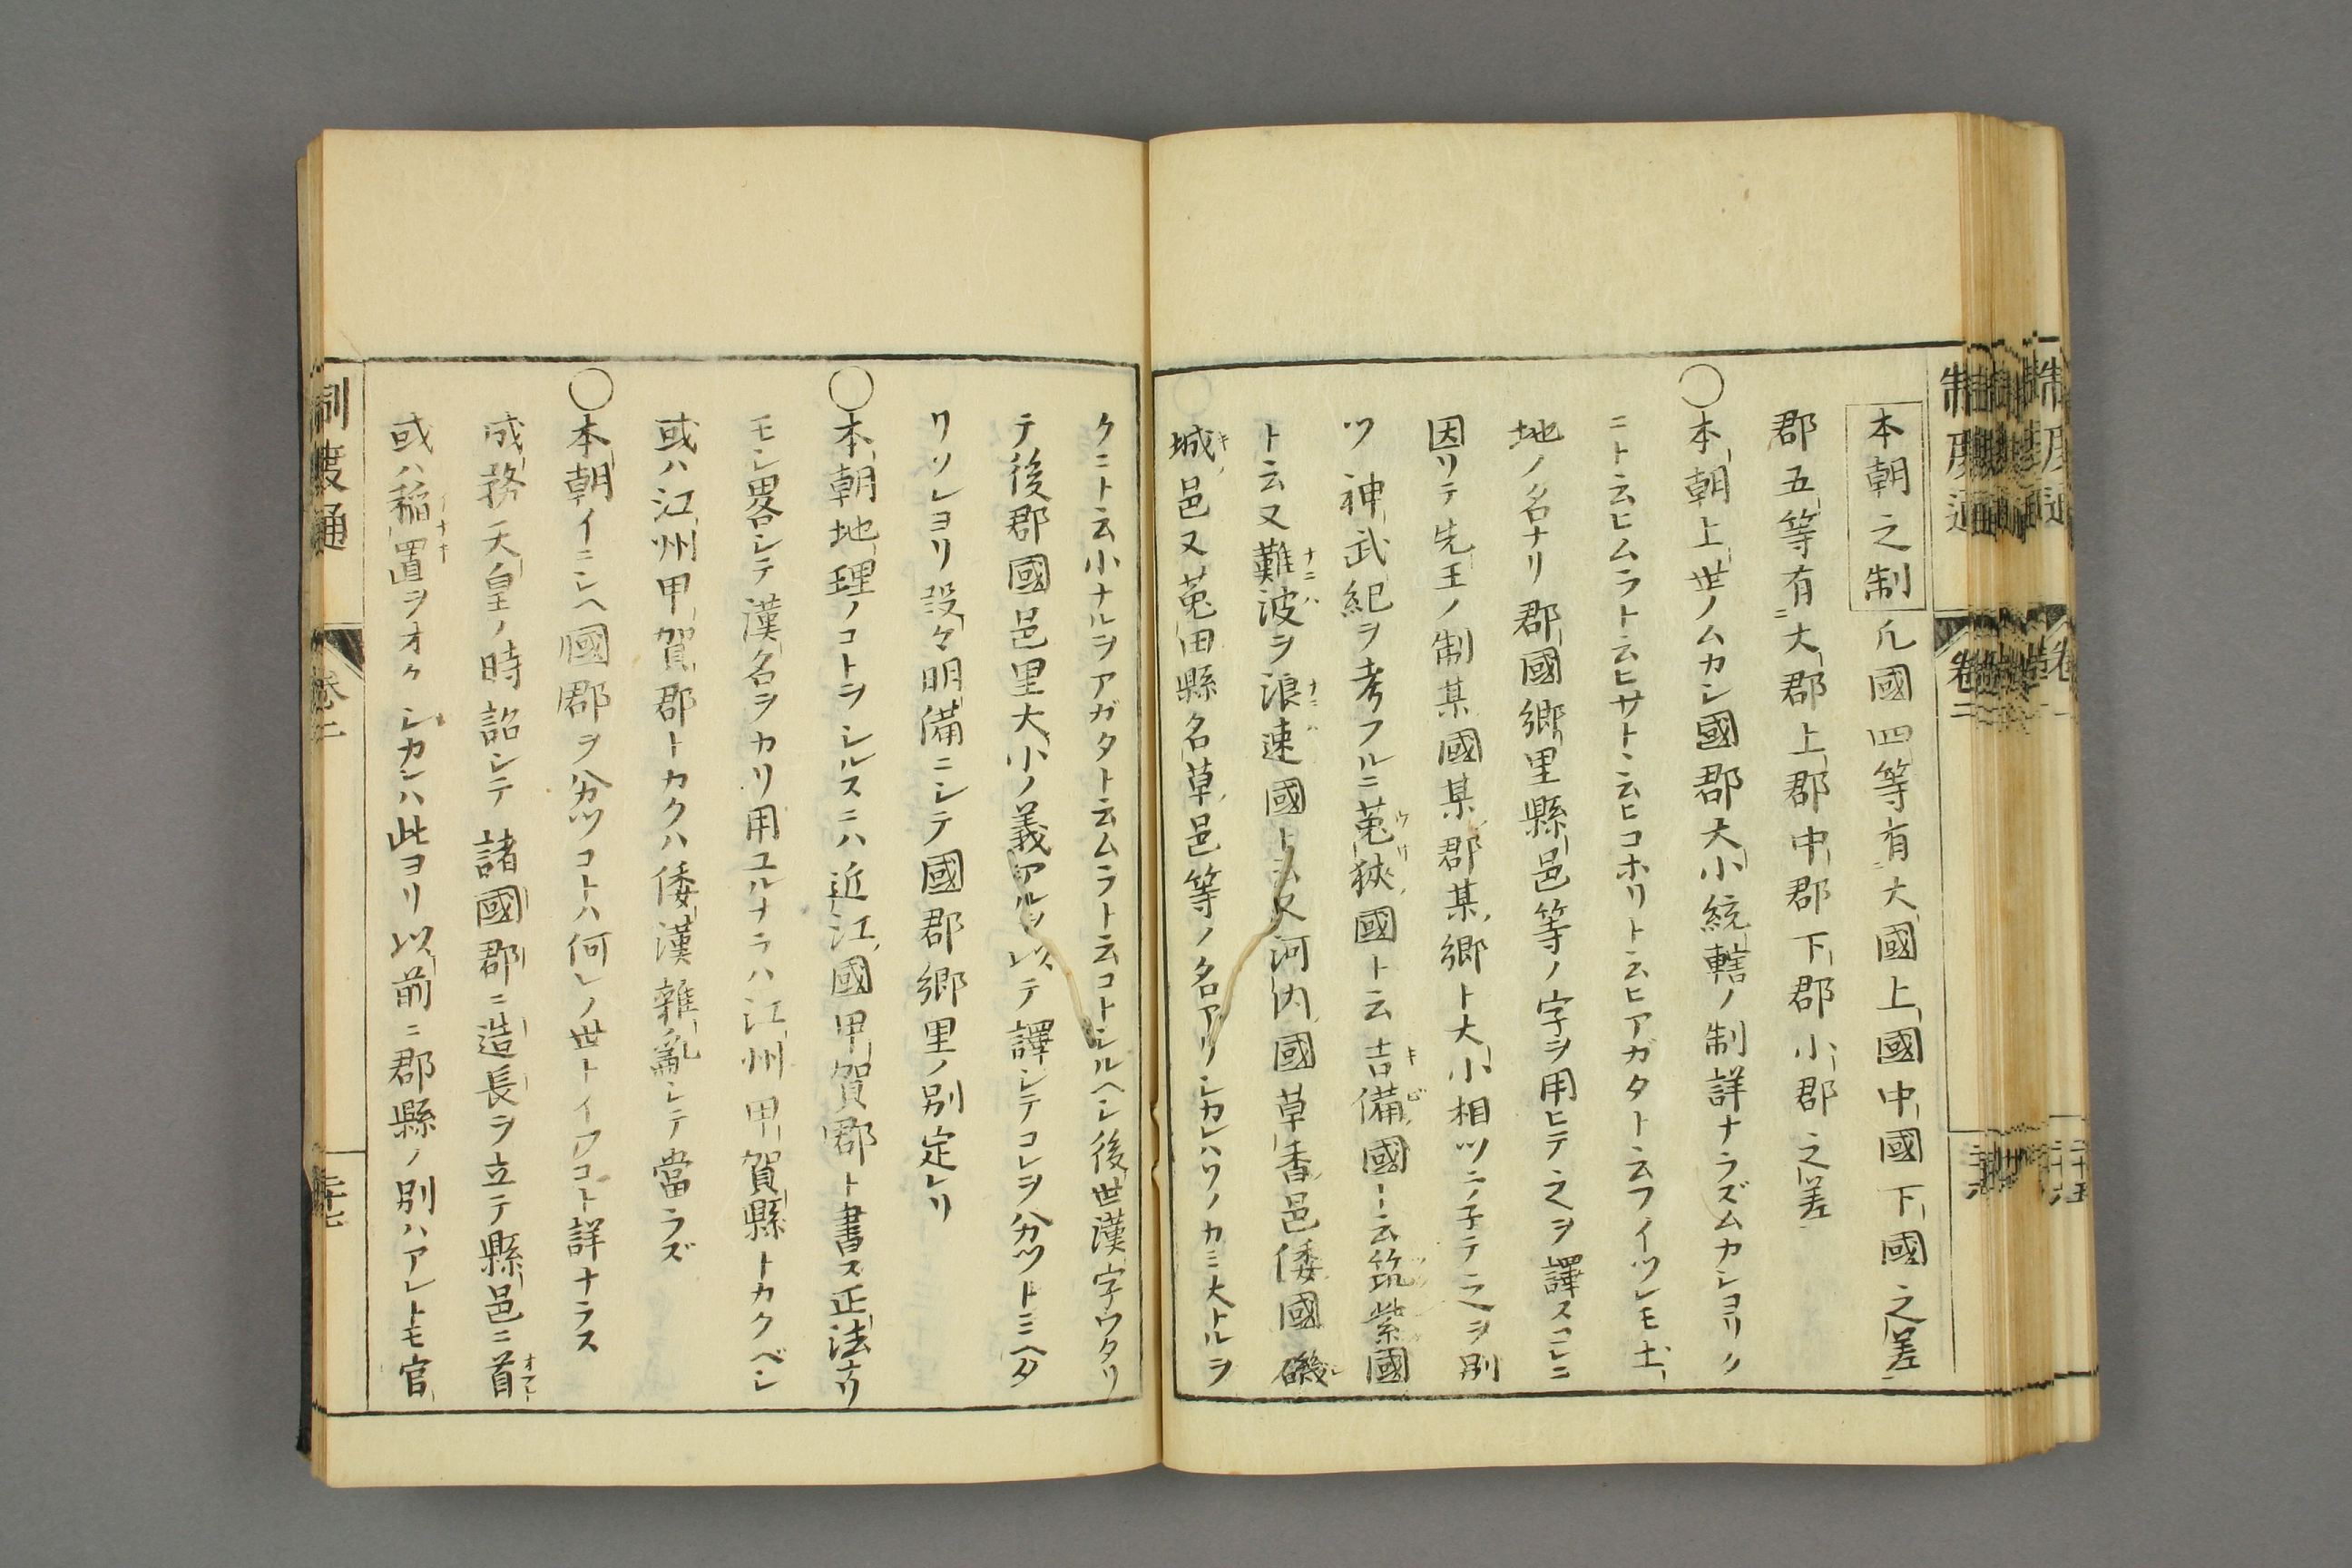 本朝之制 凡國四等有大國上國中國下國之差
郡五等有大郡上郡中郡下郡小郡之差
○本朝上世ノムカシ國郡大小統轄ノ制詳ナラズムカシヨリク
ニト云ヒムラト云ヒサト云ヒコホリト云ヒアガタト云フイツレモ土
地ノ名ナリ郡國郷里縣邑等ノ字ヲ用ヒテ之ヲ譯スコレニ
因リテ先王ノ制某國某郡某郷ト大小相ツニ子テ之ヲ別
ツ神武紀ヲ考フルニ菟狹國ト云吉備國ト云筑紫國
ト云又難波ヲ浪速國ト云又河内國草香邑倭國磯
城邑又菟田縣名草邑等ノ名アリシカレハソノカミ大トルヲ
クニト云小ナルヲアガタト云ムラト云コトシルヘシ後世漢字ワタリ
テ後郡國邑里大小ノ義アルヲ以テ譯シテコレヲ分ツトミヘタ
リソレヨリ段々明備ニシテ國郡郷里ノ別定レリ
○本朝地理ノコトヲシルスニハ近江國甲賀郡ト書ス正法ナリ
モシ畧シテ漢名ヲカリ用ユルナラハ江州甲賀縣トカクベシ
或ハ江州甲賀郡トカクハ倭漢雜亂シテ當ラズ
○本朝イニシヘ國郡ヲ分ツコトハ何レノ世トイフコト詳ナラス
成務天皇ノ時詔シテ諸國郡ニ造長ヲ立テ縣邑ニ首
或ハ稲置ヲオクシカレハ此ヨリ以前ニ郡縣ノ別ハアレトモ官
制度通
卷二
二十七